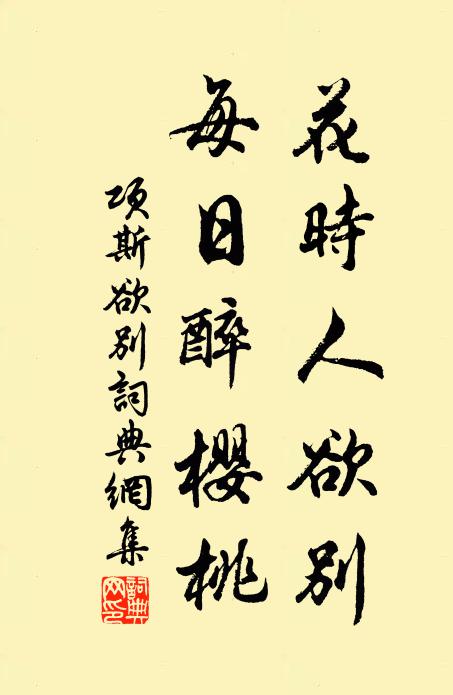 花時人欲別
每日醉櫻桃
項斯欲別詞典網集
詞典網印